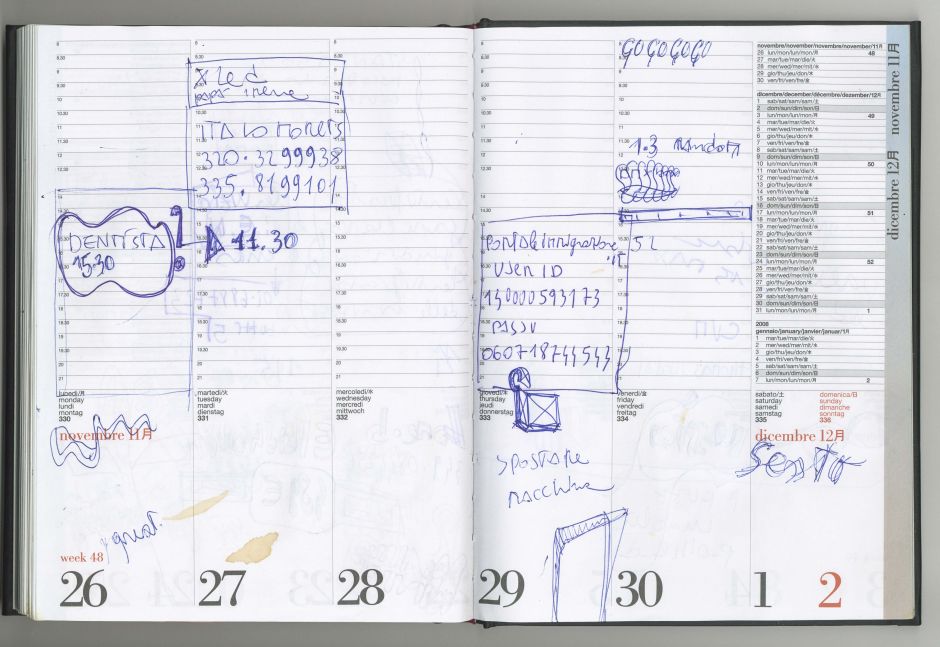 x Led
ITALO MORETS
320.3299938
335.8199101
DENTISTA
15:30
11.30
lunedì/月
monday
lundi
montag
330
martedì/火
tuesday
mardi
dienstag
331
mercoledì/水
wednesday
mercredi
mittwoch
332
novembre 11月
week 48
26
27
28
GO GO GO GO
USER ID
130000593173
PASSW
giovedì/木
thursday
jeudi
donnerstag
333
venerdì/金
friday
vendredi
freitag
334
SPOSTARE
MACCHINA
29
30
novembre/november/novembre/november/11月
26 lun/mon/lun/mon/月 48
27 mar/tue/mar/die/火
28 mer/wed/mer/mit/水
29 gio/thu/jeu/don/木
30 ven/fri/ven/fre/金
dicembre/december/décembre/dezember/12月
1 sab/sat/sam/sam/土
2 dom/sun/dim/son/日
3 lun/mon/lun/mon/月 49
4 mar/tue/mar/die/火
5 mer/wed/mer/mit/水
6 gio/thu/jeu/don/木
7 ven/fri/ven/fre/金
8 sab/sat/sam/sam/土
9 dom/sun/dim/son/日
10 lun/mon/lun/mon/月 50
11 mar/tue/mar/die/火
12 mer/wed/mer/mit/水
13 gio/thu/jeu/don/木
14 ven/fri/ven/fre/金
15 sab/sat/sam/sam/土
16 dom/sun/dim/son/日
17 lun/mon/lun/mon/月 51
18 mar/tue/mar/die/火
19 mer/wed/mer/mit/水
20 gio/thu/jeu/don/木
21 ven/fri/ven/fre/金
22 sab/sat/sam/sam/土
23 dom/sun/dim/son/日
24 lun/mon/lun/mon/月 52
25 mar/tue/mar/die/火
26 mer/wed/mer/mit/水
27 gio/thu/jeu/don/木
28 ven/fri/ven/fre/金
29 sab/sat/sam/sam/土
30 dom/sun/dim/son/日
31 lun/mon/lun/mon/月 1
2008
gennaio/january/janvier/januar/1月
1 mar/tue/mar/die/火
2 mer/wed/mer/mit/水
3 gio/thu/jeu/don/木
4 ven/fri/ven/fre/金
5 sab/sat/sam/sam/土
6 dom/sun/dim/son/日
7 lun/mon/lun/mon/月 2
sabato/土
saturday
samedi
samstag
335
domenica/日
sunday
dimanche
sonntag
336
dicembre 12月
1
2
novembre 11月
dicembre 12月